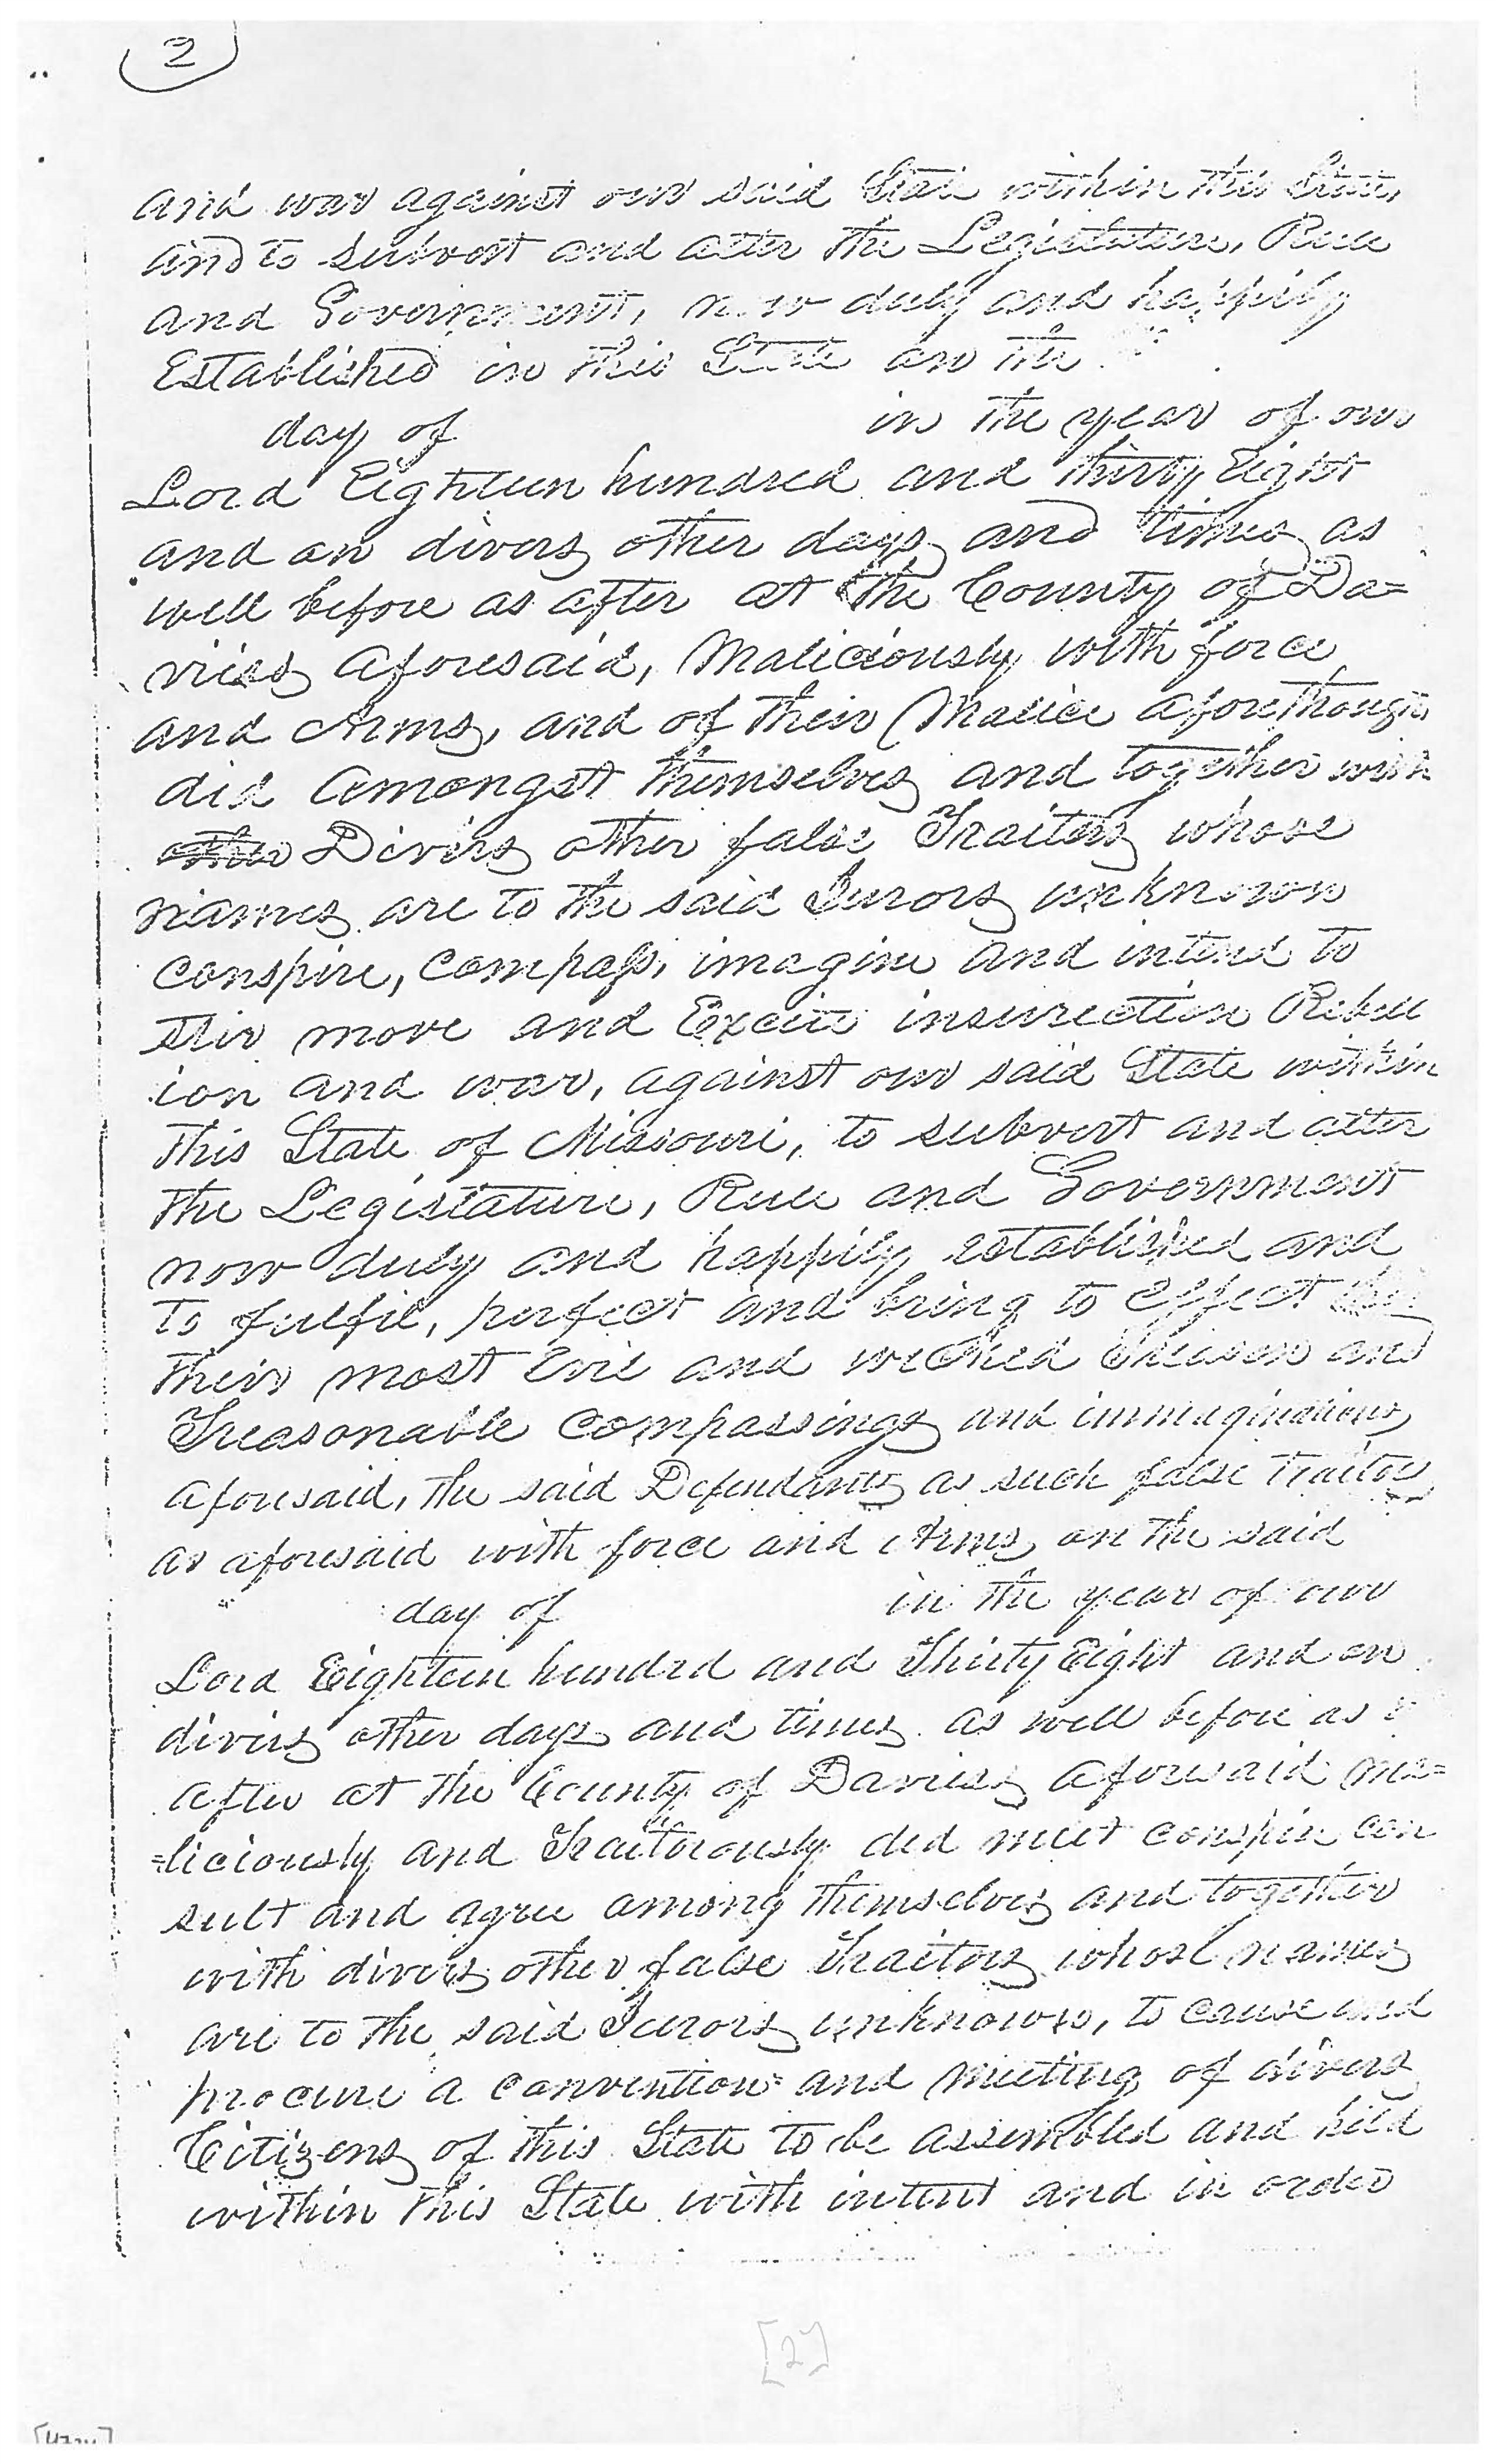 2
and war against our said State within this State,
and to subvert and alter the Legislature, Rule
and Government, now duly and happily
Established in this State on the
day of in the year of our
Lord Eighteen hundred and thirty Eight
and on divers other days and times as
well before as after at the County of Da=
viess aforesaid, Maliciously with force
and Arms, and of their Malice aforethought
did Amongst themselves and together with
other Divers other false Traitors whose
names are to the said Jurors unknown
conspire, compass, imagine and intend to
stir move and Excite insurection Rebell
ion and war, against our said State within
this State of Missouri, to subvert and alter
the Legislature, Rule and Government
now duly and happily established and
to fulfil, perfect and bring to effect
their most Evil and wicked Treason and
Treasonable compassings and immaginations
aforesaid, the said Defendants as such false traitors
as aforesaid with force and Arms on the said
day of in the year of our
Lord Eighteen hundrd and Thirty Eight and on
divers other days and times as well before as
after at the County of Daviess aforesaid ma=
=liciously and Traitorously did meet conspire con
sult and agree among themselves and together
with divers other false Traitors whose names
are to the said Jurors unknown, to cause and
procure a convention and meeting of divers
Citizens of this State to be assembled and held
within this State with intent and in order
[2]